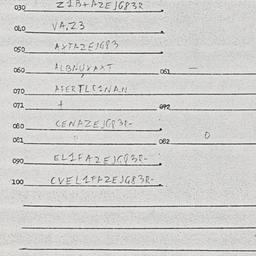 030 Z1B+AZEJG83R
040 VA,Z3
050 AXTAZEJG83
060 ALBNUXAXT 061 —
070 AFERTLE1NAN
071 + 072
080 CENAZEJG83R-
081 082 0
090 EL1FAZEJG83R-
100 CVEL1FAZEJG83R-